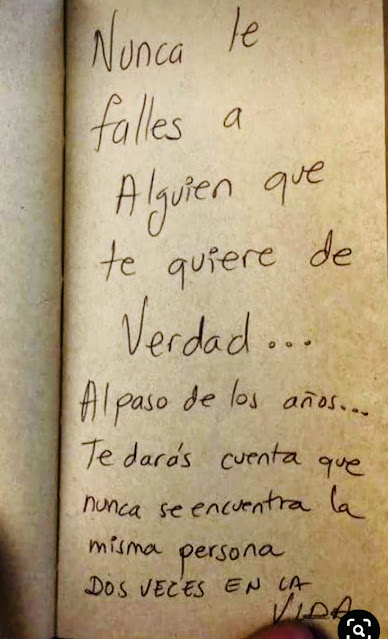 Nunca le
falles a
Alguien que
te quiere de
Verdad...
Al paso de los años...
Te darás cuenta que
nunca se encuentra la
misma persona
DOS VECES EN LA
VIDA